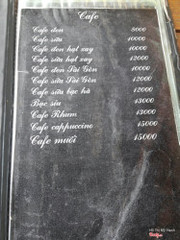 Cafe
Cafe đen 9000
Cafe sữa 10000
Cafe đen hạt xay 10000
Cafe sữa hạt xay 12000
Cafe đen Sài Gòn 10000
Cafe sữa Sài Gòn 12000
Cafe sữa bạc hà 12000
Bạc sỉu 13000
Cafe Rhum 13000
Cafe cappuccino 15000
Cafe muối 15000